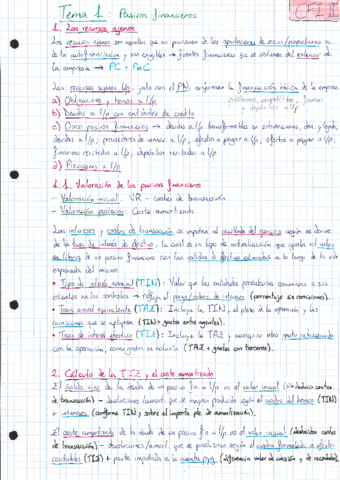 Tema 1: Pasivos financieros
CFI II
1. Los recursos ajenos
Los recursos ajenos son aquellos que no provienen de las aportaciones de socios/propietarios ni
de la autofinanciación y son exigibles → fuentes financieras que se obtienen del exterior de
la empresa → PC + PnC
Los recursos ajenos l/p, junto con el PN, conforman la financiación básica de la empresa
a) Obligaciones y bonos a l/p
b) Deudas a l/p con entidades de crédito
c) Otros pasivos financieros → deudas a l/p transformables en subvenciones, don. y legad.,
deudas a l/p, proveedores de inmov. a l/p, efectos a pagar a l/p,
fianzas recibidas a l/p, depósitos recibidos a l/p
d) Provisiones a l/p
1.1. Valoración de los pasivos financieros
- Valoración inicial: VR - costes de transacción
- Valoración posterior: Coste amortizado
Los intereses y costes de transacción se imputan al resultado del ejercicio según se derive
de la tasa de interés efectivo, la cual es un tipo de actualización que iguala el valor
en libros de un pasivo financiero con las salidas de efectivo estimadas a lo largo de la vida
esperada del mismo
• Tipo de interés nominal (TIN): Valor que las entidades prestatarias comunican a sus
clientes en los contratos → refleja el pago/cobro de intereses (porcentaje sin comisiones).
• Tasa anual equivalente (TAE): Incluye la TIN, el plazo de la operación, y las
comisiones que se apliquen (TIN + gastos entre agentes).
• Tasa de interés efectivo (TIE): Incluye la TAE y cualquier otro gasto relacionado
con la operación, como gastos de notaría (TAE + gastos con terceros).
2. Cálculo de la TIE y el coste amortizado
El saldo vivo de la deuda de un pasivo fin. a l/p es el valor inicial (sin deducir costes
de transacción) - devoluciones/amort. que se hayan producido según el cuadro del banco (TIN)
+ intereses (conforme TIN) sobre el importe pte. de amortización.
El coste amortizado de la deuda de un pasivo fin. a l/p es el valor inicial (deducidos costes
de transacción) - devoluciones/amort. que se produzcan según el cuadro formulado a efectos
contables (TIE) + parte imputada a la cuenta pyg (diferencia valor de emisión y de reembolso).